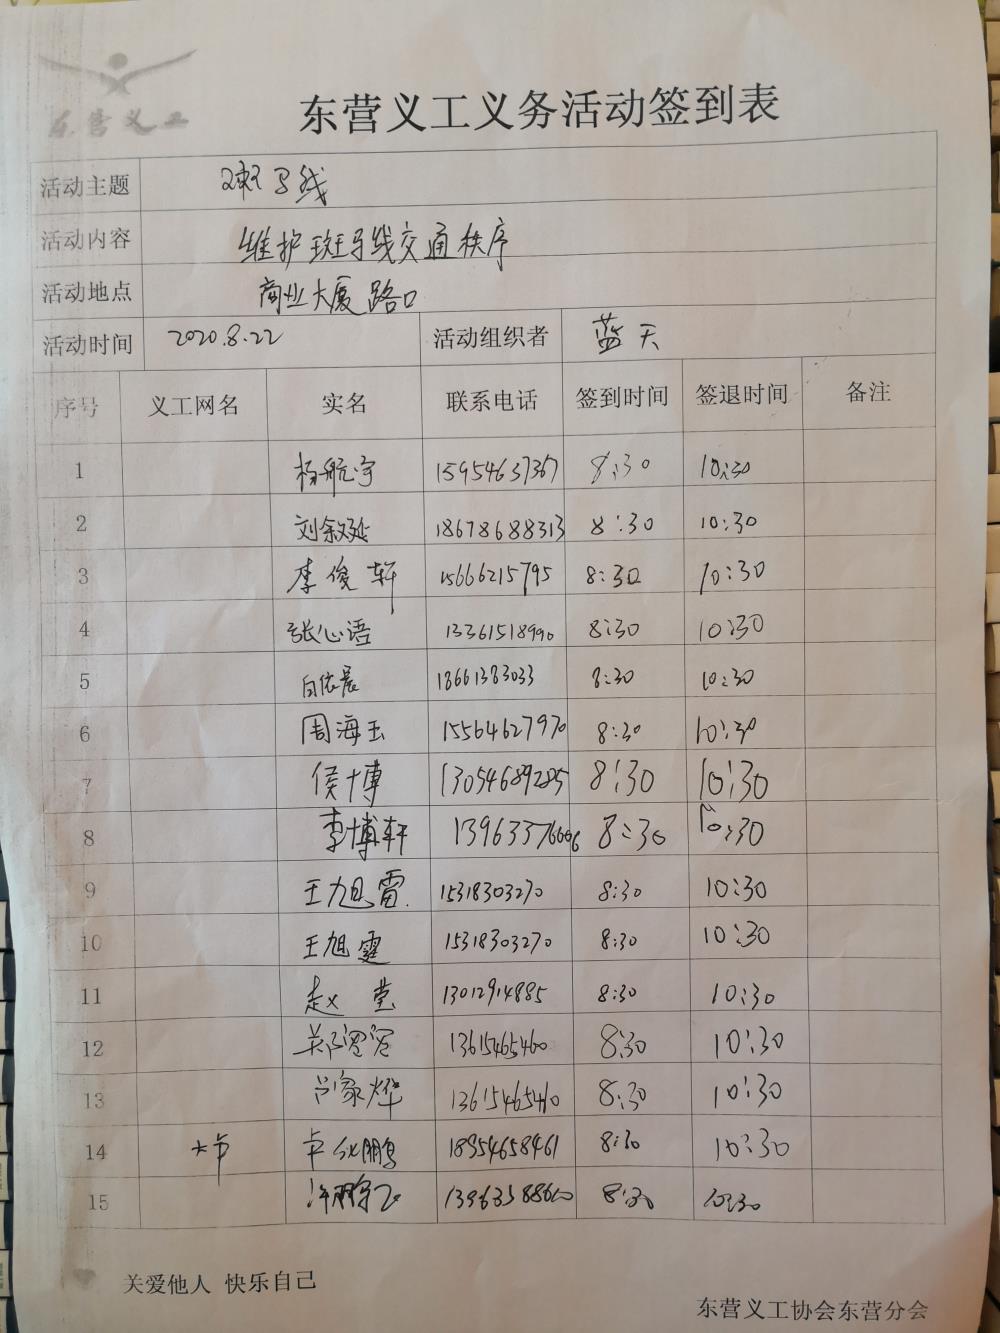 东营义工
东营义工义务活动签到表
活动主题 马线
活动内容 维护斑马线交通秩序
活动地点 商业大厦路口
活动时间 2020.8.22 活动组织者 蓝天
序号 义工网名 实名 联系电话 签到时间 签退时间 备注
1 杨航宇 15954637367 8:30 10:30
2 刘叙延 18678688313 8:30 10:30
3 李俊轩 15666215795 8:30 10:30
4 张心语 13361518990 8:30 10:30
5 白依晨 18661383033 8:30 10:30
6 周海玉 15564627970 8:30 10:30
7 侯博 13054689285 8:30 10:30
8 李博轩 8:30 10:30
9 王旭雷 15318303270 8:30 10:30
10 王旭霆 15318303270 8:30 10:30
11 赵莹 13012914885 8:30 10:30
12 13615465460 8:30 10:30
13 吕家烨 13615465460 8:30 10:30
14 大卓 卓双鹏 18954658461 8:30 10:30
15 8:30 10:30
关爱他人 快乐自己
东营义工协会东营分会